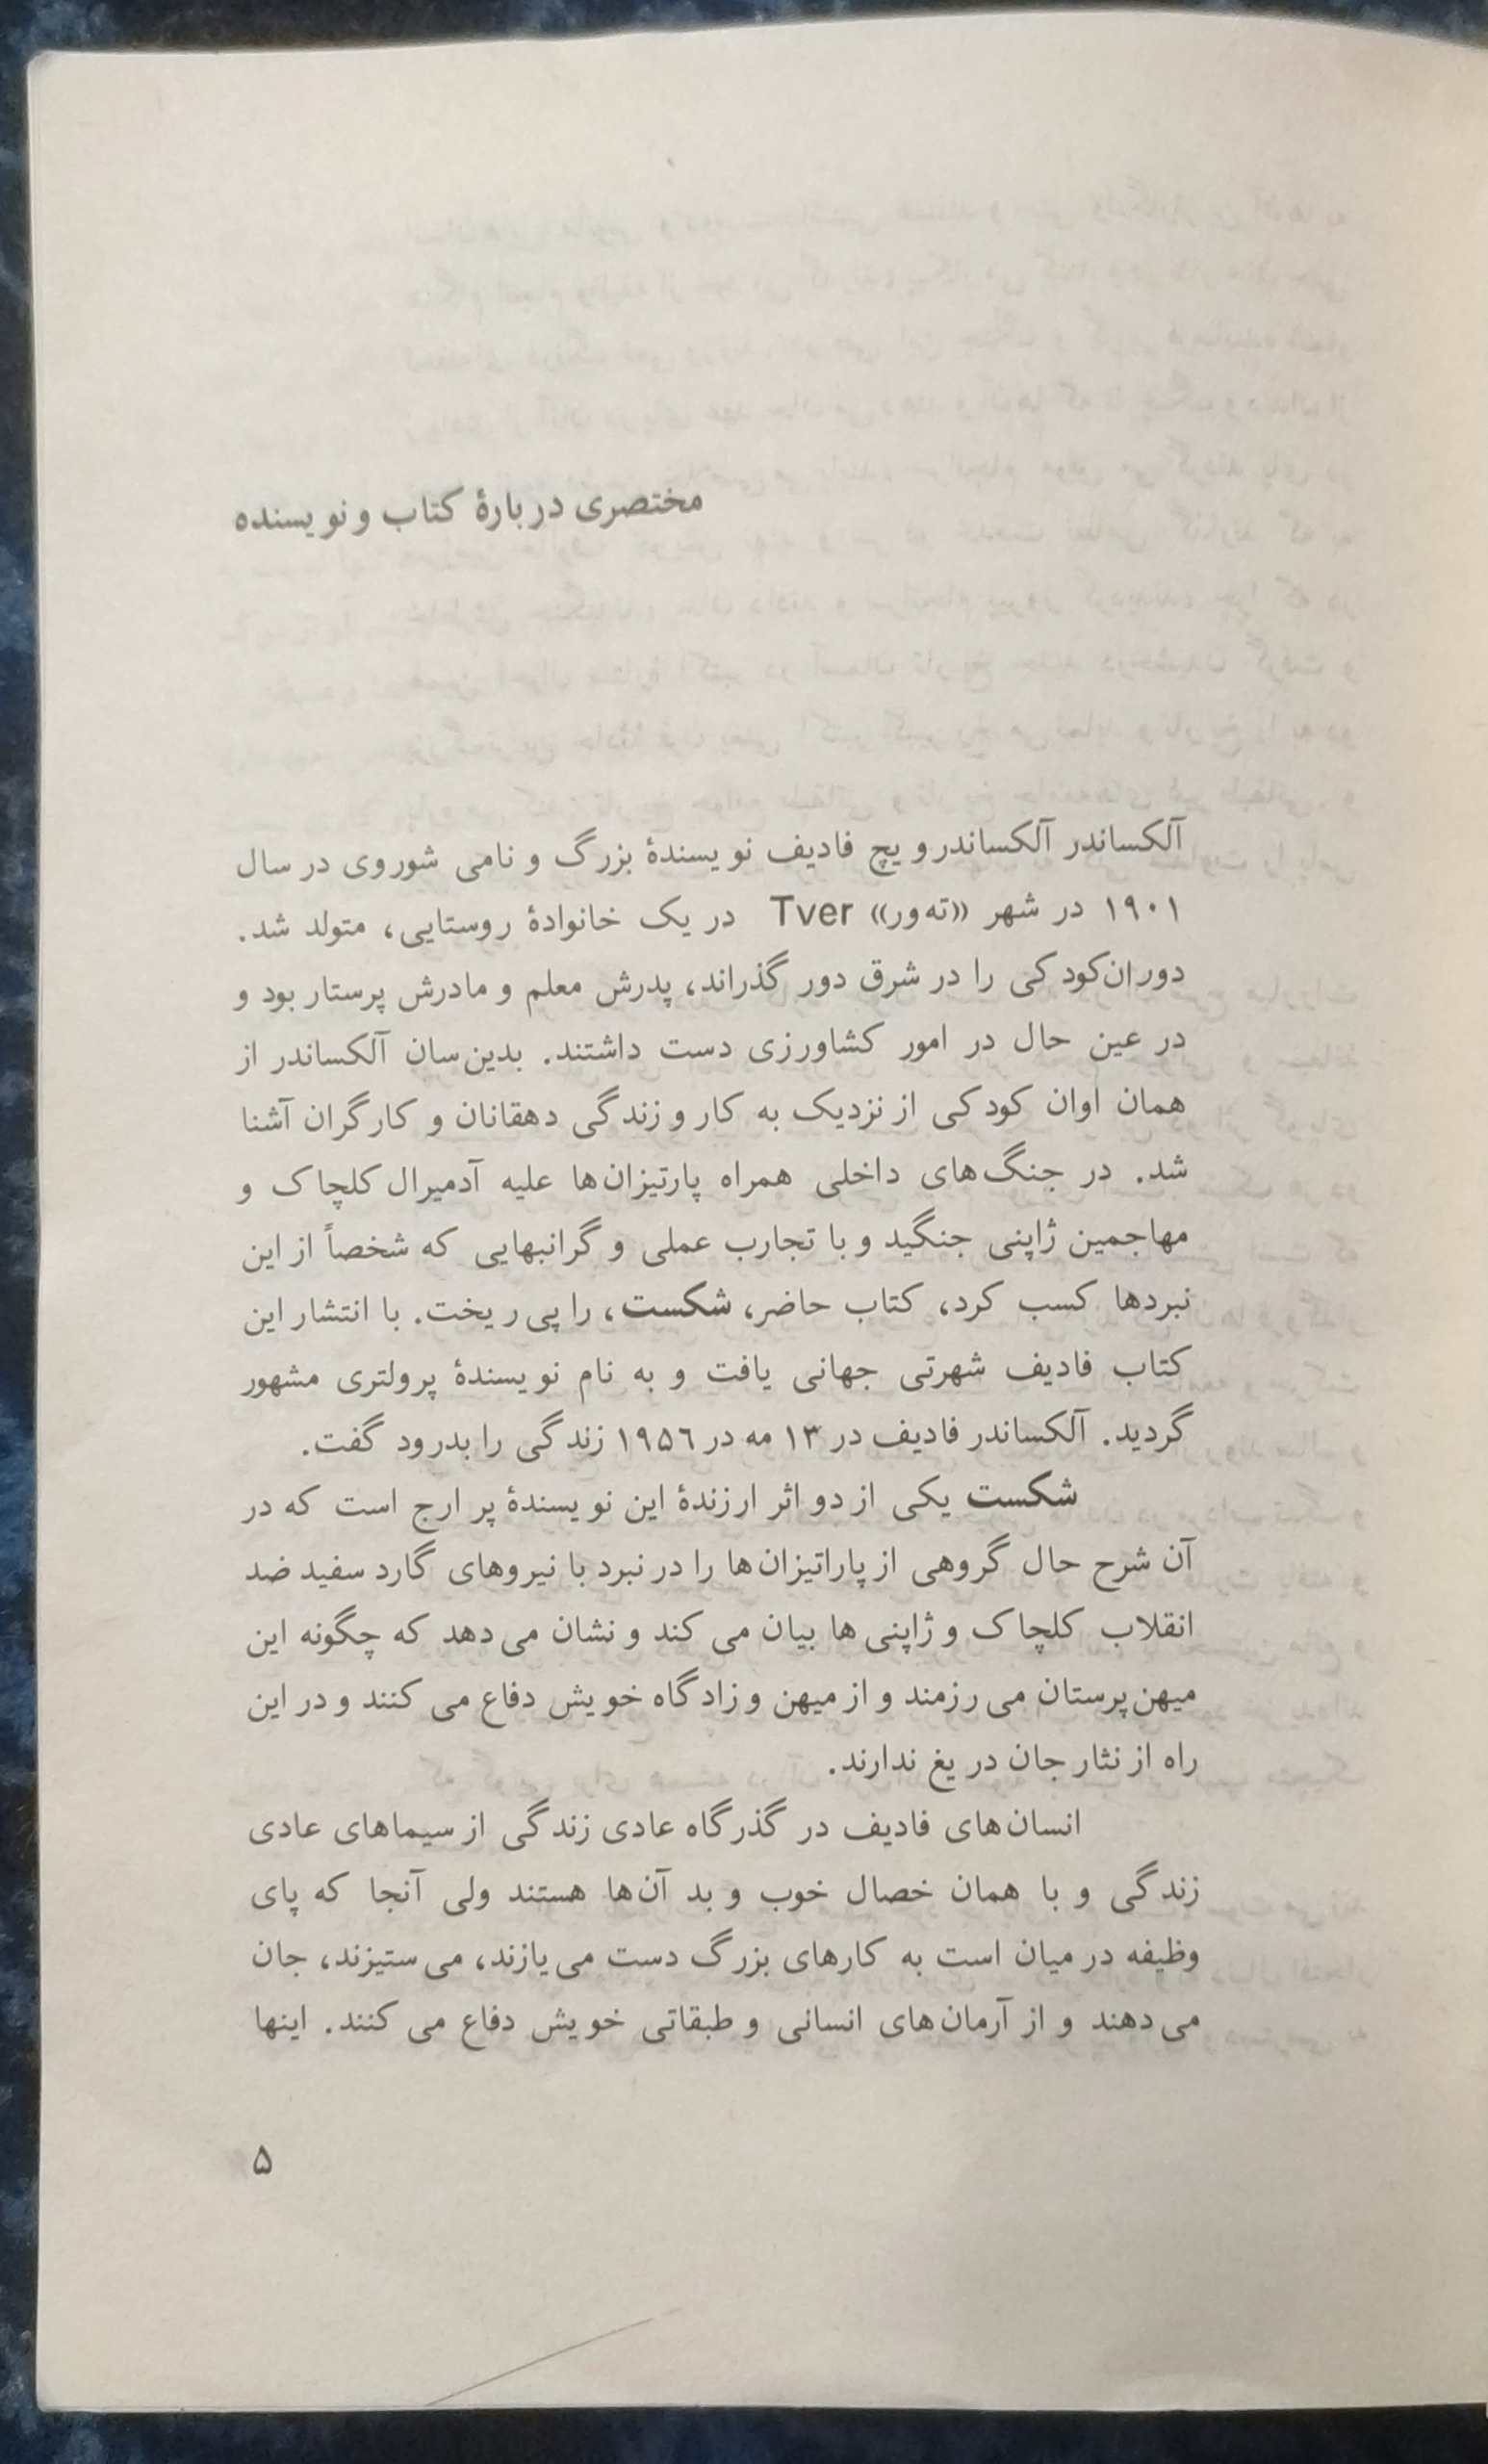 مختصری دربارهٔ کتاب و نویسنده
آلکساندر آلکساندرویچ فادیف نویسندهٔ بزرگ و نامی شوروی در سال
۱۹۰۱ در شهر «ته‌ور» Tver در یک خانوادهٔ روستایی، متولد شد.
دوران‌کودکی را در شرق دور گذراند، پدرش معلم و مادرش پرستار بود و
در عین حال در امور کشاورزی دست داشتند. بدین‌سان آلکساندر از
همان اوان کودکی از نزدیک به کار و زندگی دهقانان و کارگران آشنا
شد. در جنگ‌های داخلی همراه پارتیزان‌ها علیه آدمیرال کلچاک و
مهاجمین ژاپنی جنگید و با تجارب عملی و گرانبهایی که شخصاً از این
نبردها کسب کرد، کتاب حاضر، شکست، را پی ریخت. با انتشار این
کتاب فادیف شهرتی جهانی یافت و به نام نویسندهٔ پرولتری مشهور
گردید. آلکساندر فادیف در ۱۳ مه در ۱۹۵۶ زندگی را بدرود گفت.
شکست یکی از دو اثر ارزندهٔ این نویسندهٔ پر ارج است که در
آن شرح حال گروهی از پاراتیزان‌ها را در نبرد با نیروهای گارد سفید ضد
انقلاب کلچاک و ژاپنی ها بیان می کند و نشان می دهد که چگونه این
میهن‌پرستان می رزمند و از میهن و زادگاه خویش دفاع می کنند و در این
راه از نثار جان دریغ ندارند.
انسان‌های فادیف در گذرگاه عادی زندگی از سیماهای عادی
زندگی و با همان خصال خوب و بد آن‌ها هستند ولی آنجا که پای
وظیفه در میان است به کارهای بزرگ دست می یازند، می ستیزند، جان
می دهند و از آرمان‌های انسانی و طبقاتی خویش دفاع می کنند. اینها
۵